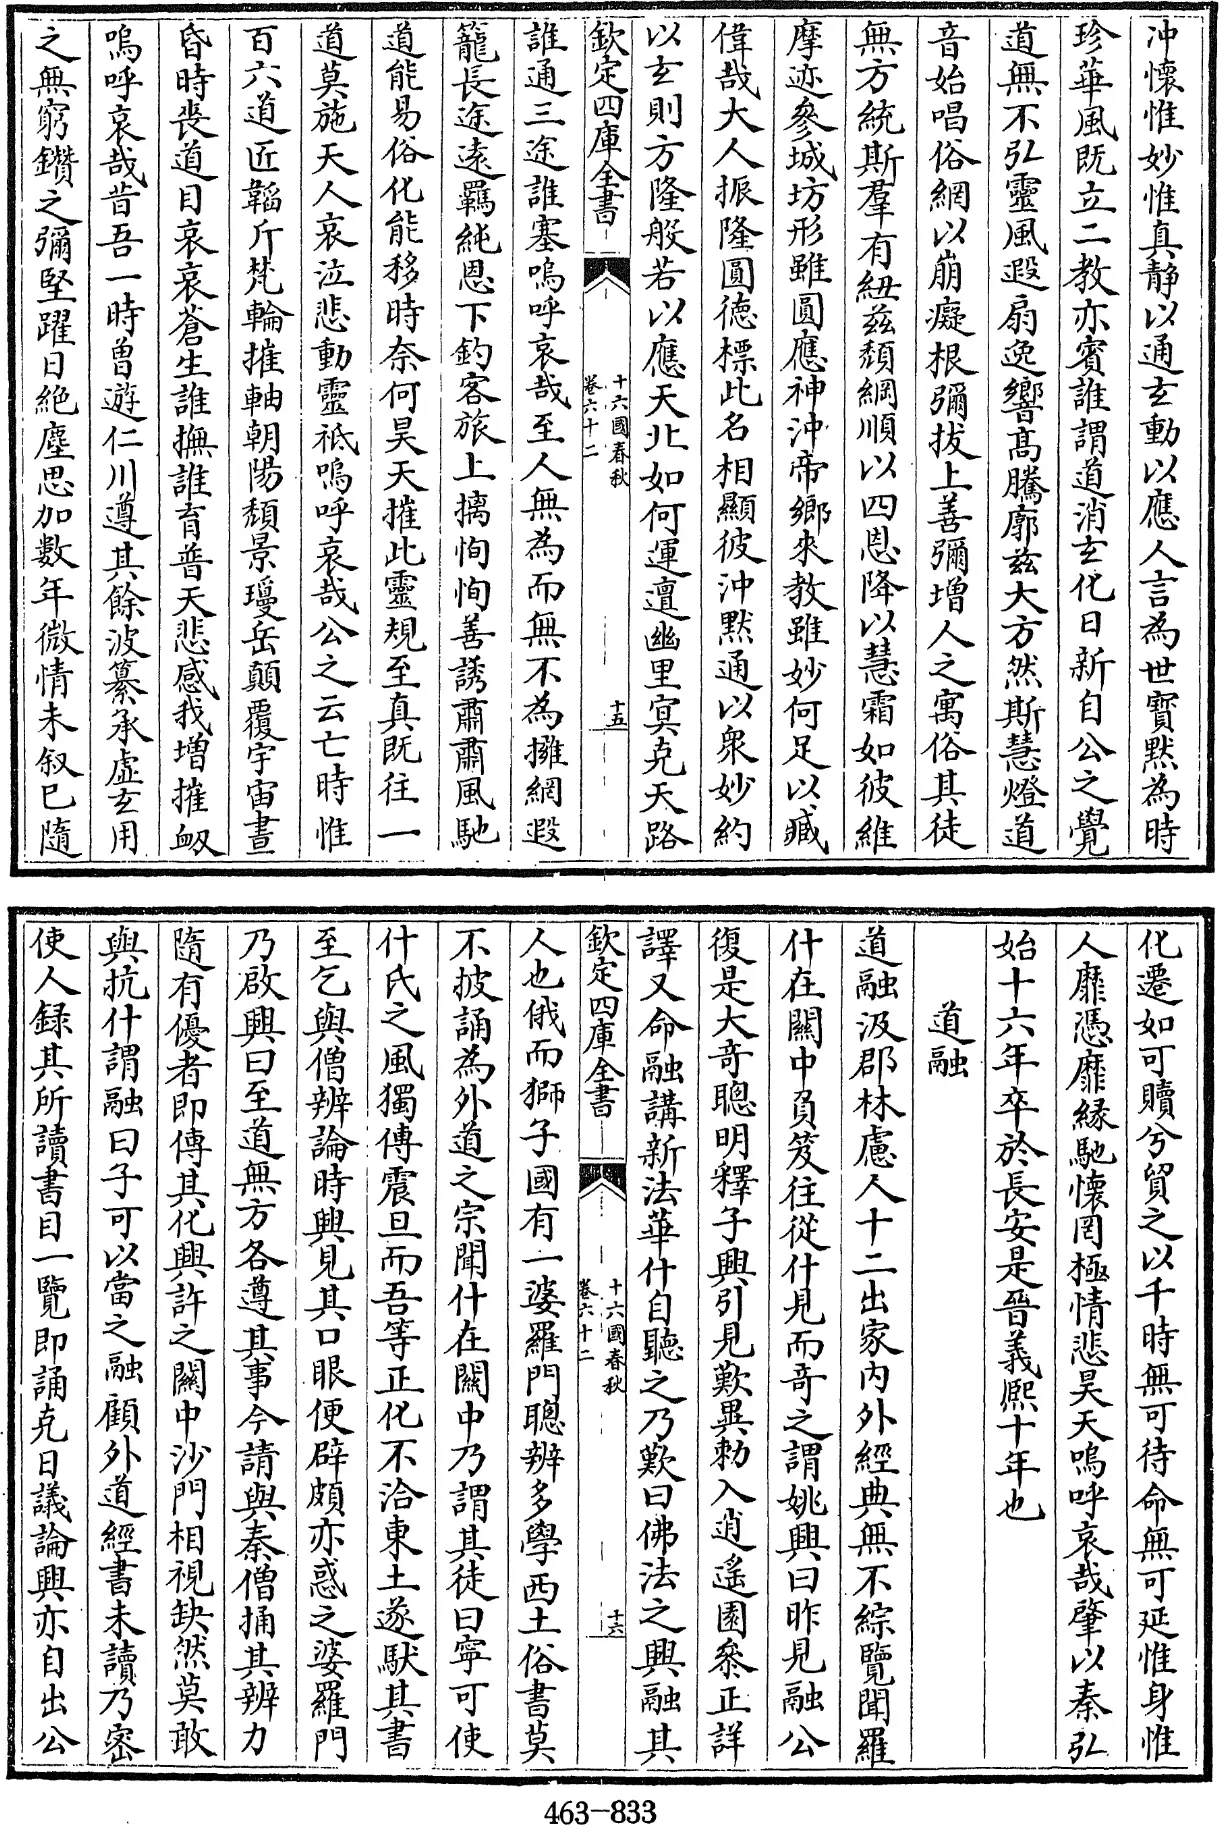 沖懷惟妙惟真静以通𤣥動以應人言為世寳黙為時
珍華風既立二教亦賓誰謂道消𤣥化日新自公之覺
道無不弘靈風遐扇逸響髙騰廓兹大方然斯慧燈道
音始唱俗網以崩癡根彌拔上善彌增人之寓俗其徒
無方統斯羣有紐兹頽綱順以四恩降以慧霜如彼維
摩迹參城坊形雖圓應神沖帝鄉來教雖妙何足以臧
偉哉大人振隆圓德標此名相顯彼沖黙通以衆妙約
以𤣥則方隆般若以應天北如何運邅幽里㝠克天路
欽定四庫全書
十六國春秋
卷六十二
十五
誰通三途誰塞嗚呼哀哉至人無為而無不為擁網遐
籠長途遠羈純恩下釣客旅上摛恂恂善誘肅肅風馳
道能易俗化能移時奈何昊天摧此靈規至真既往一
道莫施天人哀泣悲動靈祇嗚呼哀哉公之云亡時惟
百六道匠韜斤梵輪摧軸朝陽頽景瓊岳顛覆宇宙晝
昏時喪道目哀哀蒼生誰撫誰育普天悲感我增摧衂
嗚呼哀哉昔吾一時曽遊仁川遵其餘波纂承虚𤣥用
之無窮鑽之彌堅躍日絶塵思加數年微情未叙巳隨
化遷如可贖兮貿之以千時無可待命無可延惟身惟
人靡憑靡縁馳懷罔極情悲昊天嗚呼哀哉肇以秦弘
始十六年卒於長安是晉義熈十年也
道融
道融汲郡林慮人十二出家内外經典無不綜覽聞羅
什在關中負笈往從什見而奇之謂姚興曰昨見融公
復是大奇聰明釋子興引見歎異勅入逍遙園叅正詳
譯又命融講新法華什自聽之乃歎曰佛法之興融其
欽定四庫全書
十六國春秋
卷六十二
十六
人也俄而獅子國有一婆羅門聰辨多學西土俗書莫
不披誦為外道之宗聞什在關中乃謂其徒曰寧可使
什氏之風獨傳震旦而吾等正化不洽東土遂馱其書
至乞與僧辨論時興見其口眼便辟頗亦惑之婆羅門
乃啟興曰至道無方各遵其事今請與秦僧捅其辨力
隨有優者即傳其化興許之關中沙門相視缺然莫敢
與抗什謂融曰子可以當之融顧外道經書未讀乃宻
使人録其所讀書目一覽即誦克日議論興亦自出公
463-833